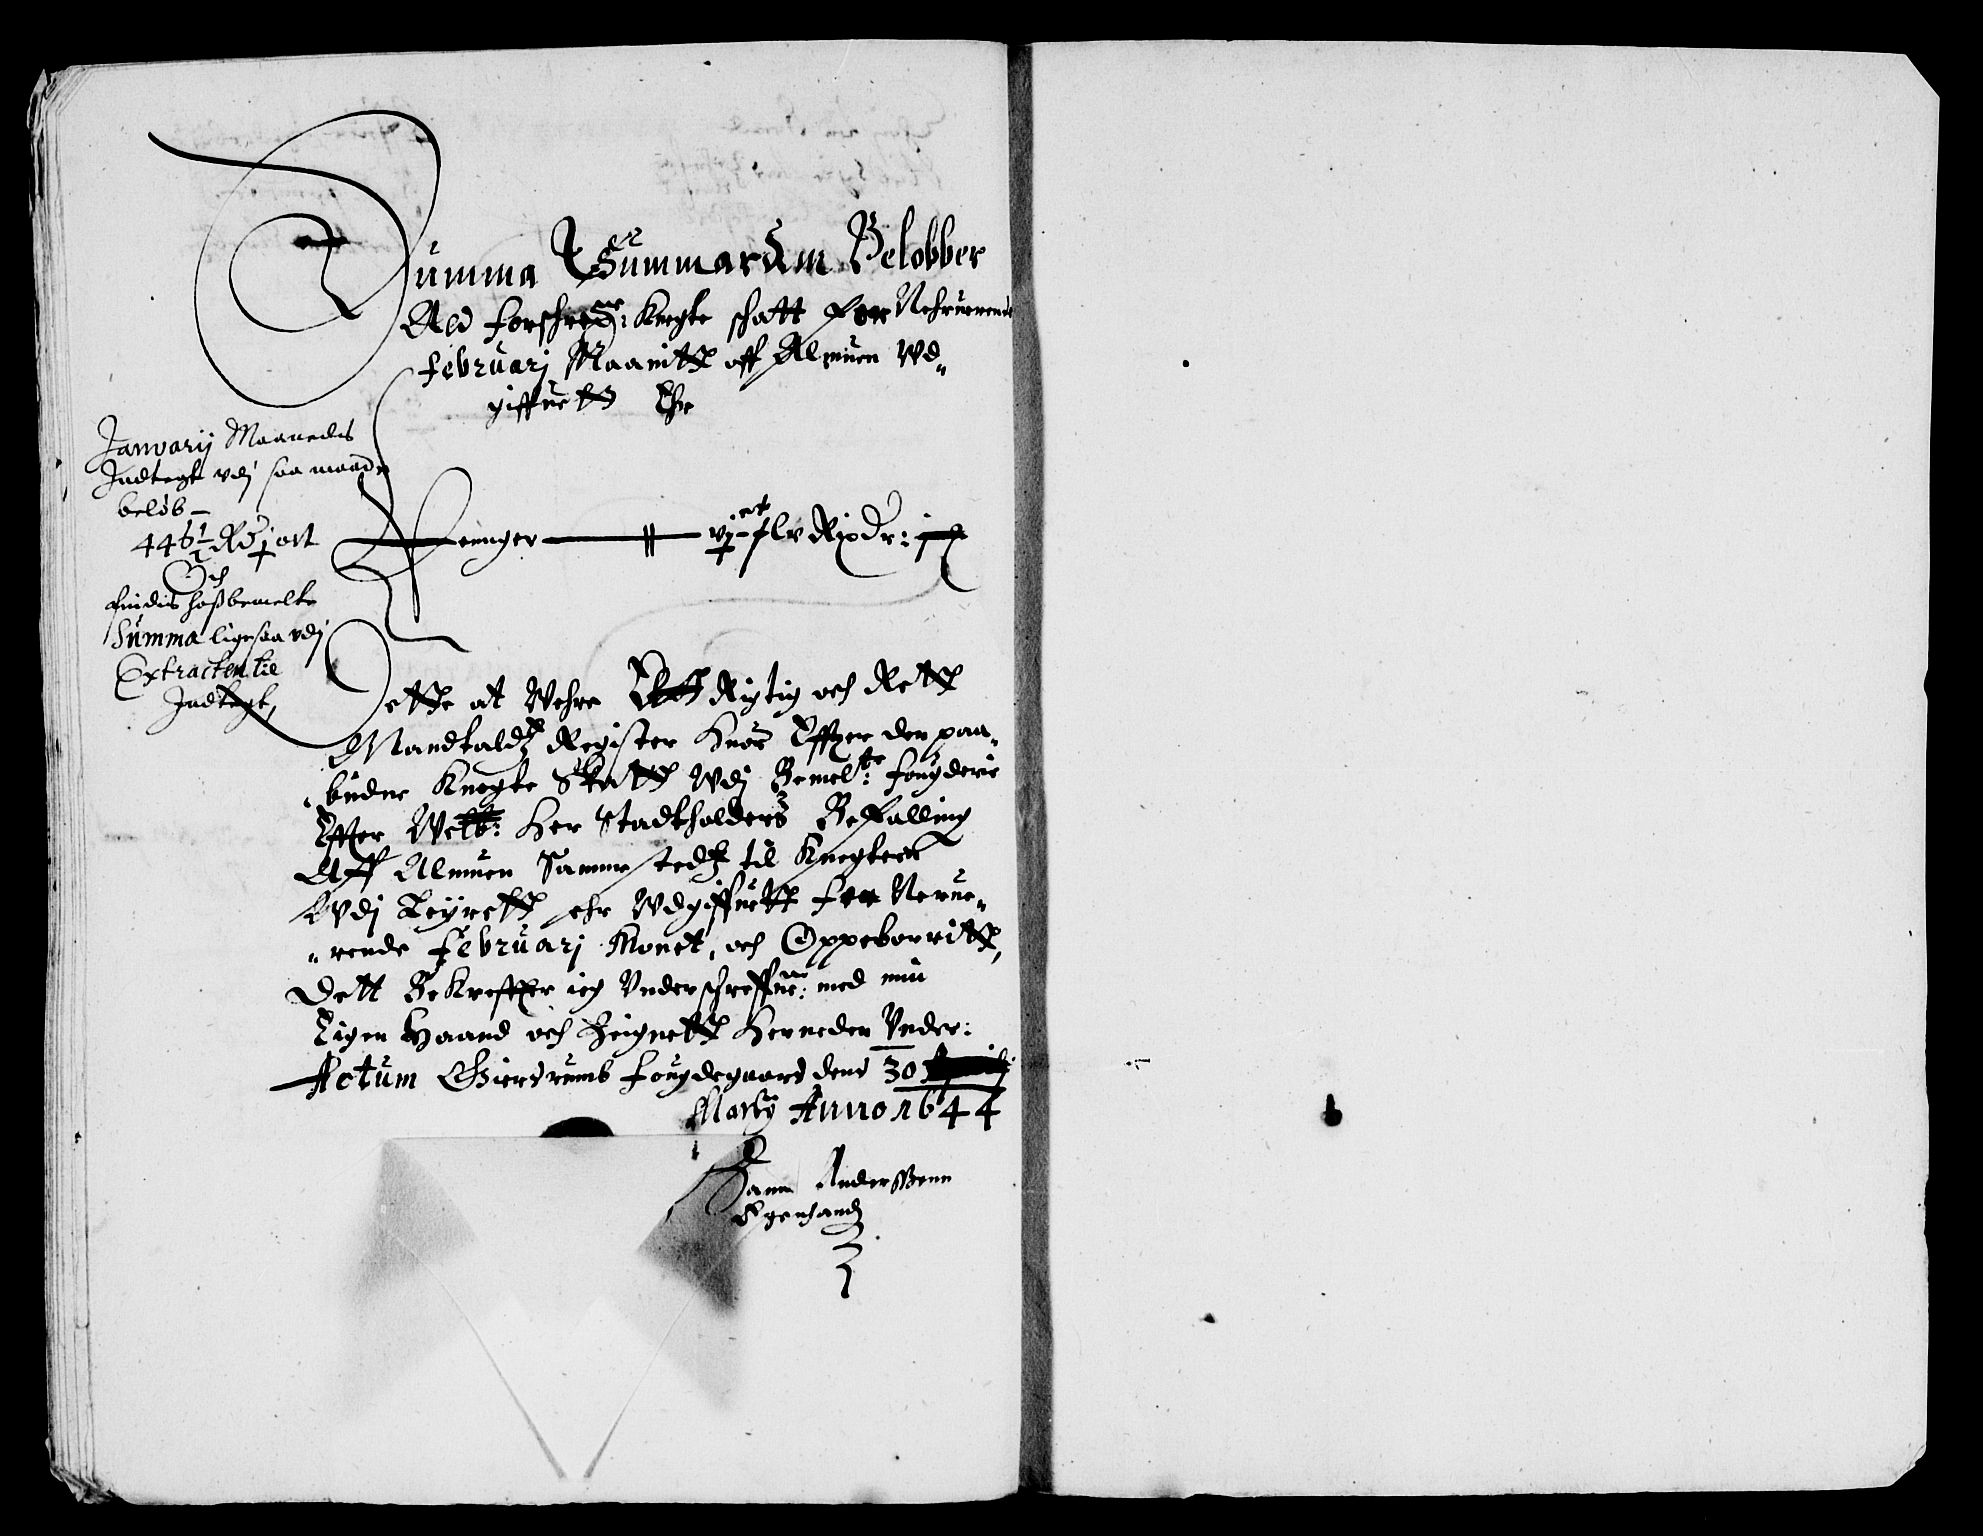 Summa Summarum Belobber
Ald forschreffne: Knegte schatt for Nehruerende
Februarj Maanitt off Almuen Wd„
giffuett Ehr
Januarij Maanedis
Indtegt vdj saa maade
beløb —
446½ Rdr 1 ort
Och
findis hoßbemelte
Summa ligesaa vdj
Extracten til
Indtegt,
Penger — || — vj C lv Rixdr:
Dette at Wehre Ett Rigtig och Rett
Mandtaldz Register huor Effter den paa„
„budne Knegte Skatt Wdj Bemelte: fougderie
Effter Welb: Her Stadtholders Befalling
Aff Almuen Sammestedz til Knegterne
Wdj Leyrett ehr Wdgiffuett for Nerue„
„rende Februarj Monet, och Oppeborritt,
Dett Bekreffter ieg Vnderschreffne: med min
Eigen Haand och Zeignett Herneden Vnder:
Actum Gierdrumb fougdegaard dend 30
Martij Anno 1644
Anderßenn
Egenhand